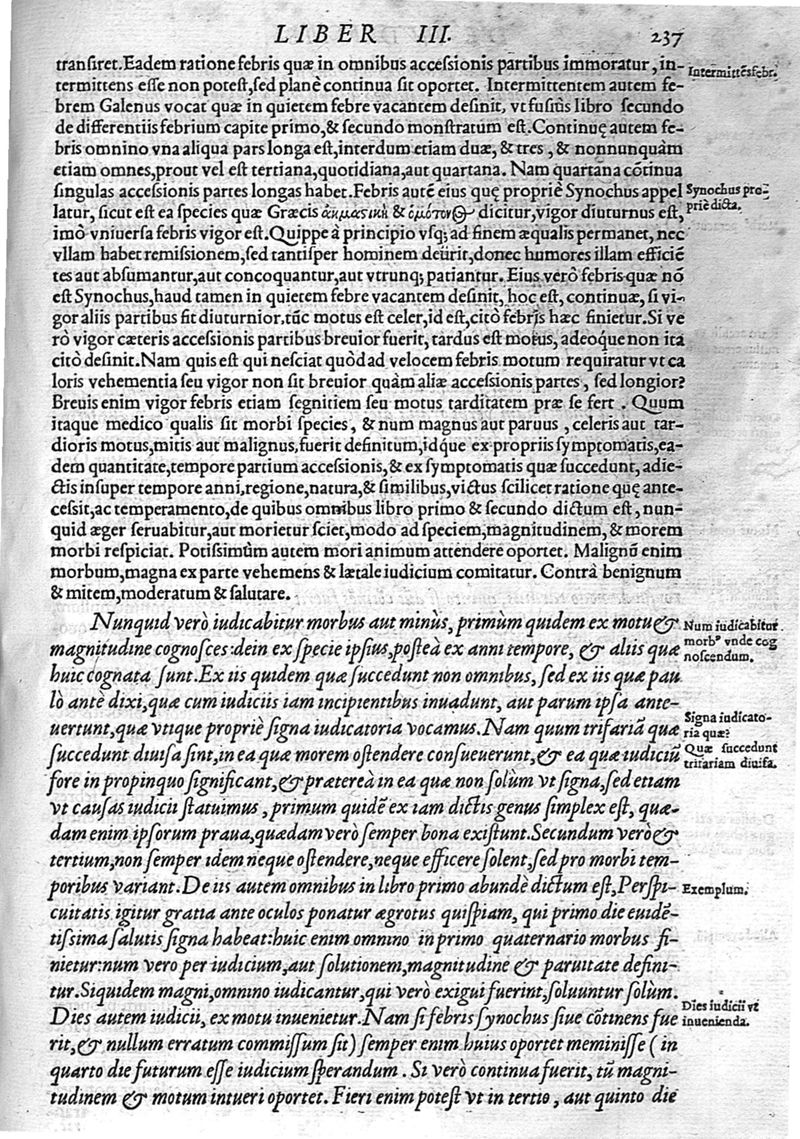 LIBER III. 237
transiret. Eadem ratione febris quæ in omnibus accessionis partibus immoratur, in-
termittens esse non potest, sed planè continua sit oportet. Intermittentem autem fe-
brem Galenus vocat quæ in quietem febre vacantem desinit, vt fusiùs libro secundo
de differentiis febrium capite primo, & secundo monstratum est. Continuę autem fe-
bris omnino vna aliqua pars longa est, interdum etiam duæ, & tres, & nonnunquàm
etiam omnes, prout vel est tertiana, quotidiana, aut quartana. Nam quartana cõtinua
singulas accessionis partes longas habet. Febris autẽ eius quę propriè Synochus appel
latur, sicut est ea species quæ Græcis ἀκμαστικὴ & ὁμότονος dicitur, vigor diuturnus est,
imò vniuersa febris vigor est. Quippe à principio vsq; ad finem æqualis permanet, nec
vllam habet remissionem, sed tantisper hominem deürit, donec humores illam efficiẽ
tes aut absumantur, aut concoquantur, aut vtrunq; patiantur. Eius verò febris quæ nõ
est Synochus, haud tamen in quietem febre vacantem desinit, hoc est, continuæ, si vi-
gor aliis partibus sit diuturnior, tũc motus est celer, id est, citò febris hæc finietur. Si ve
rò vigor cæteris accessionis partibus breuior fuerit, tardus est motus, adeoque non ita
citò desinit. Nam quis est qui nesciat quòd ad velocem febris motum requiratur vt ca
loris vehementia seu vigor non sit breuior quàm aliæ accessionis partes, sed longior?
Breuis enim vigor febris etiam segnitiem seu motus tarditatem præ se fert. Quum
itaque medico qualis sit morbi species, & num magnus aut paruus, celeris aut tar-
dioris motus, mitis aut malignus, fuerit definitum, idque ex propriis symptomatis, ea-
dem quantitate, tempore partium accessionis, & ex symptomatis quæ succedunt, adie-
ctis insuper tempore anni, regione, natura, & similibus, victus scilicet ratione quę ante-
cessit, ac temperamento, de quibus omnibus libro primo & secundo dictum est, nun-
quid æger seruabitur, aut morietur sciet, modo ad speciem, magnitudinem, & morem
morbi respiciat. Potissimùm autem mori animum attendere oportet. Malignũ enim
morbum, magna ex parte vehemens & lætale iudicium comitatur. Contrà benignum
& mitem, moderatum & salutare.
Nunquid verò iudicabitur morbus aut minùs, primùm quidem ex motu &
magnitudine cognosces: dein ex specie ipsius, posteà ex anni tempore, & aliis quæ
huic cognata sunt. Ex iis quidem quæ succedunt non omnibus, sed ex iis quæ pau
lò antè dixi, quæ cum iudiciis iam incipientibus inuadunt, aut parum ipsa ante-
uertunt, quæ vtique propriè signa iudicatoria vocamus. Nam quum trifariã quæ
succedunt diuisa sint, in ea quæ morem ostendere consueuerunt, & ea quæ iudiciũ
fore in propinquo significant, & prætereà in ea quæ non solùm vt signa, sed etiam
vt causas iudicii statuimus, primum quidẽ ex iam dictis genus simplex est, quæ-
dam enim ipsorum praua, quædam verò semper bona existunt. Secundum verò &
tertium, non semper idem neque ostendere, neque efficere solent, sed pro morbi tem-
poribus variant. De iis autem omnibus in libro primo abundè dictum est, Perspi-
cuitatis igitur gratia ante oculos ponatur ægrotus quispiam, qui primo die euidẽ-
tissima salutis signa habeat: huic enim omnino in primo quaternario morbus fi-
nietur: num vero per iudicium, aut solutionem, magnitudine & paruitate defini-
tur. Siquidem magni, omnino iudicantur, qui verò exigui fuerint, soluuntur solùm.
Dies autem iudicii, ex motu inuenietur. Nam si febris synochus siue cõtinens fue
rit, & nullum erratum commissum sit) semper enim huius oportet meminisse ( in
quarto die futurum esse iudicium sperandum. Si verò continua fuerit, tũ magni-
tudinem & motum intueri oportet. Fieri enim potest vt in tertio, aut quinto die
Intermittẽs febr.
Synochus pro-
priè dicta.
Num iudicabitur
morbꝰ vnde cog
noscendum.
Signa iudicato-
ria quæ?
Quæ succedunt
trifariam diuisa.
Exemplum.
Dies iudicii vt
inuenienda.